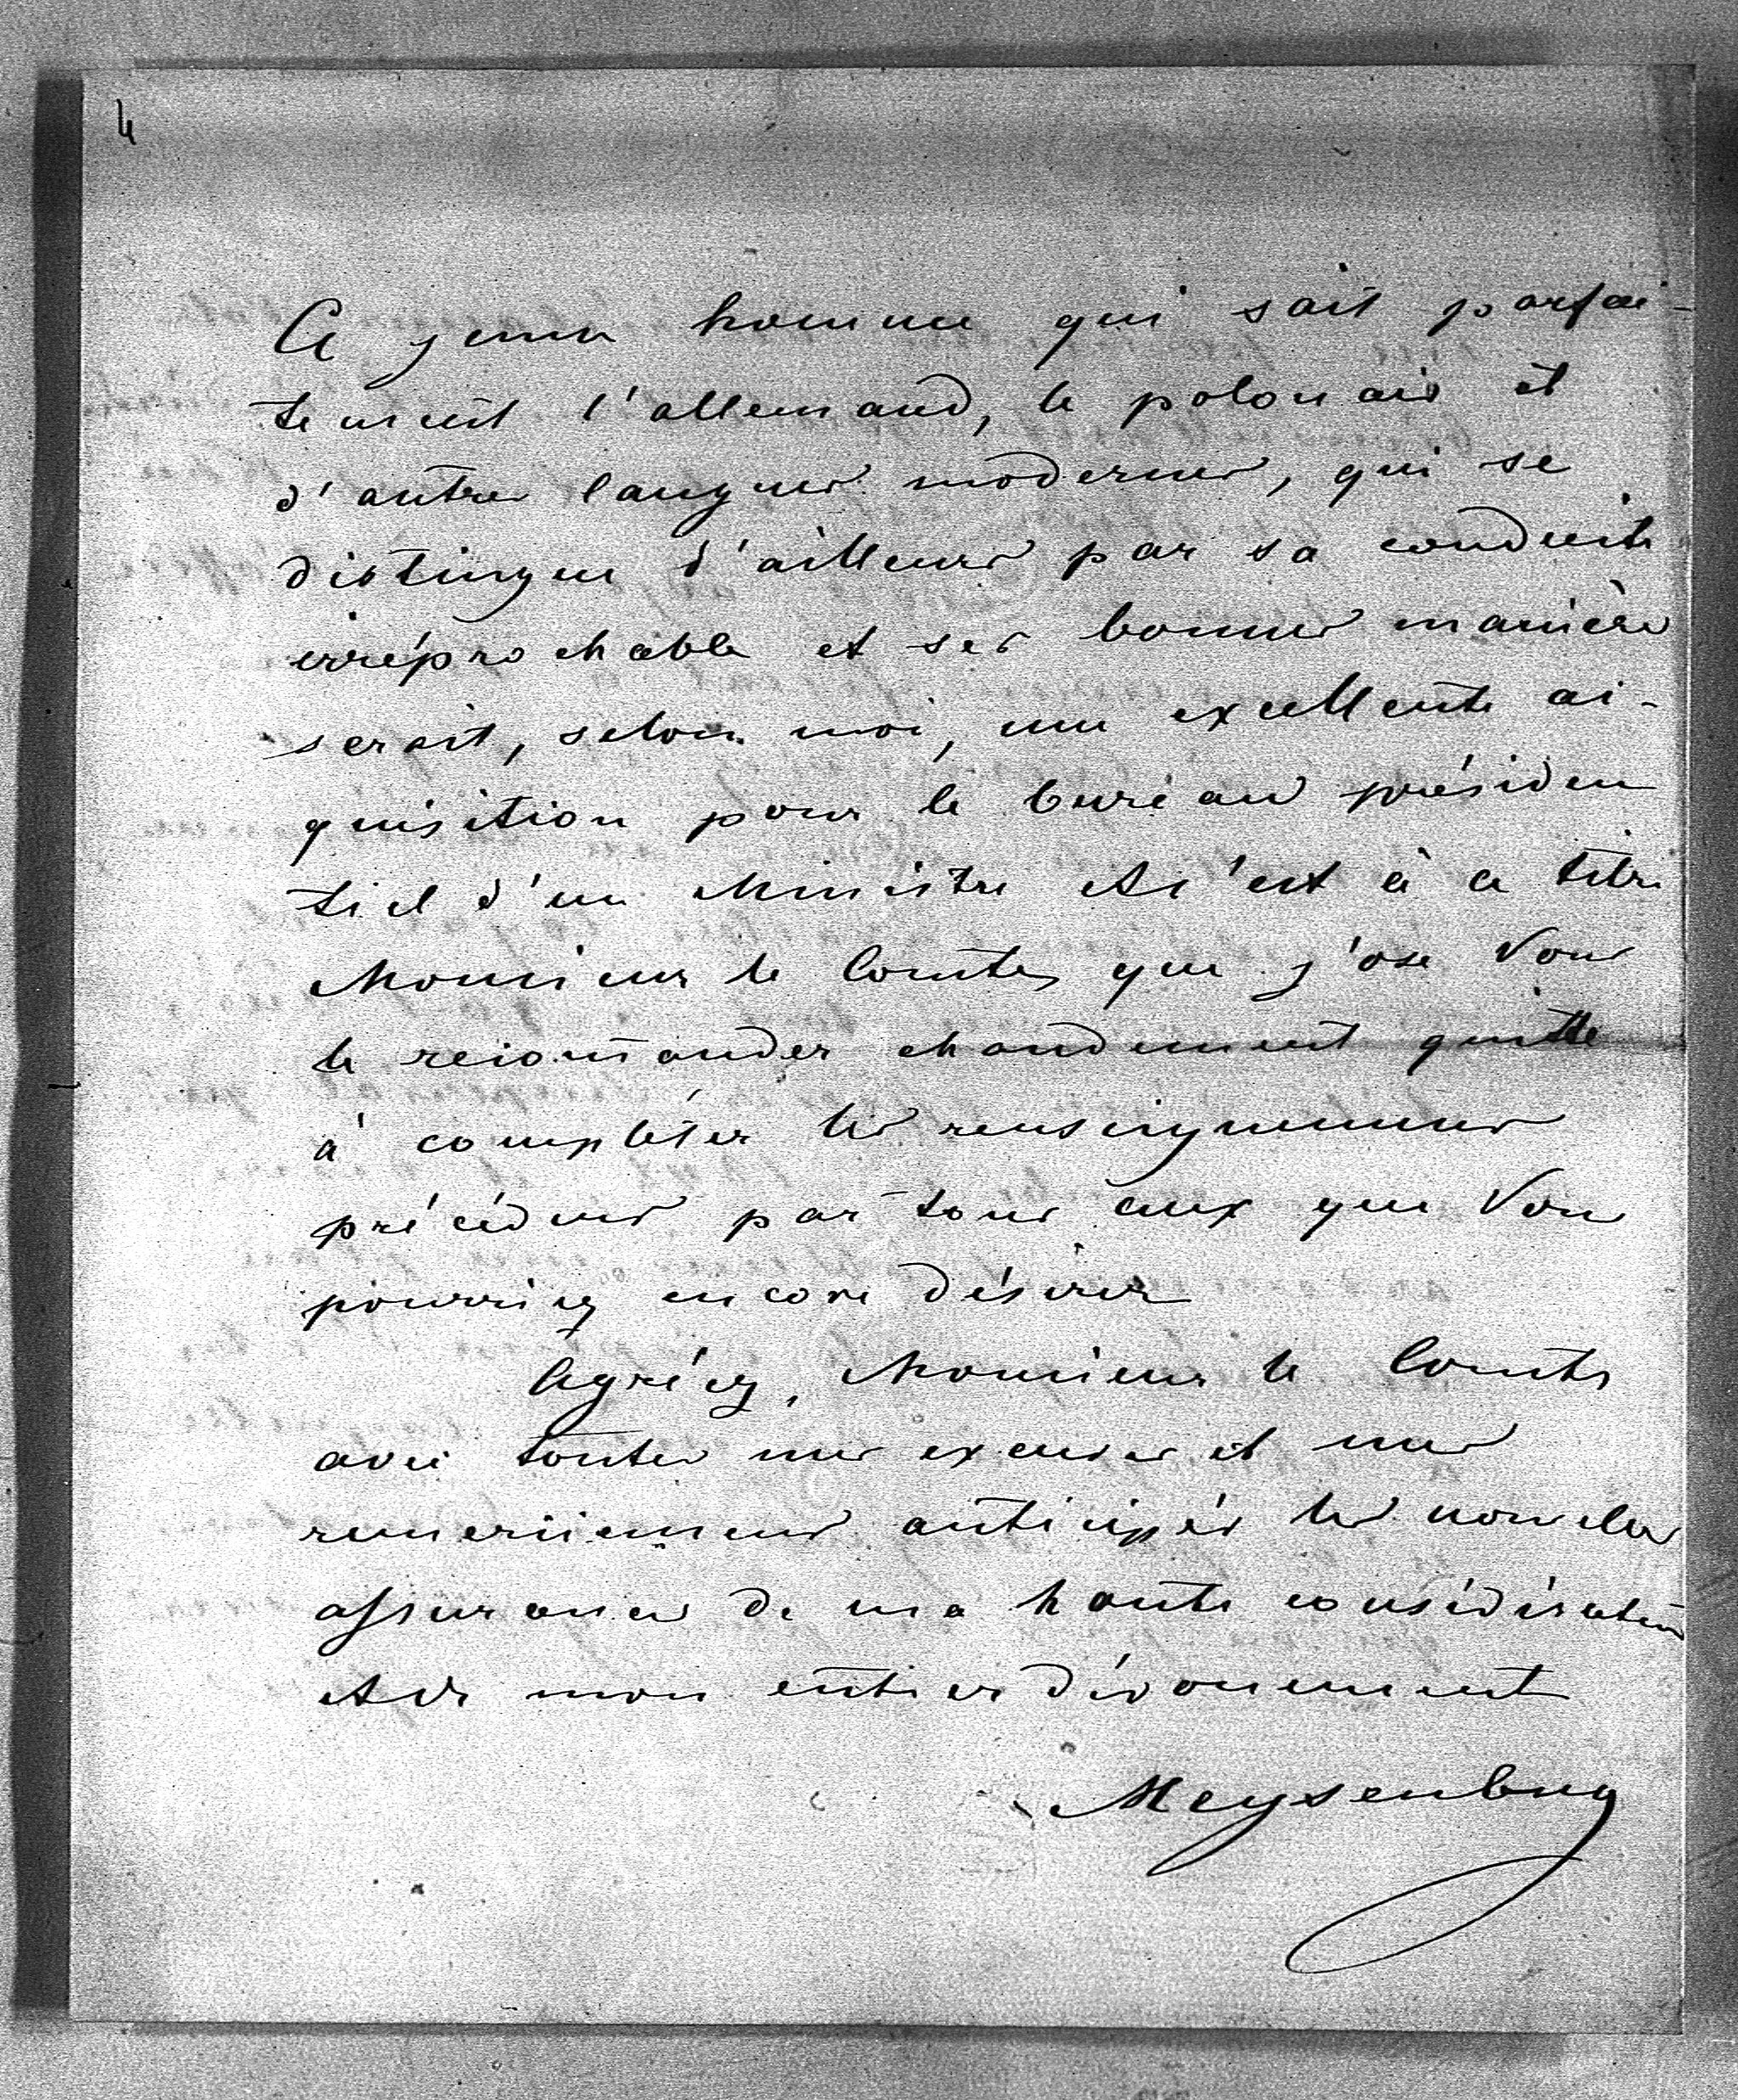 4
Ce jeune homme qui sait parfai-
tement l'allemand, le polonais et
d'autres langues modernes, qui se
distingue d'ailleurs par sa conduite
irréprochable et ses bonnes manières
serait, selon moi, une excellente ac-
quisition pour le bureau présiden
tiel d'un Ministre et c'est à ce titre
Monsieur le Comte, que j'ose Vous
le recom̄ander chaudement quitte
à compléter les renseignemens
précédens par tous ceux que Vous
pourriez encore désirer
Agréez, Monsieur le Comte
avec toutes mes excuses et mes
remerciemens anticippés les nouvelles
assurances de ma haute considération
et de mon entier dévouement
Meysenbug